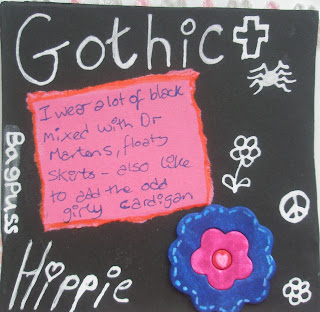 Gothic
I wear a lot of black
mixed with Dr
Martens, floaty
skirts - also like
to add the odd
girly cardigan
BagPuss
Hippie